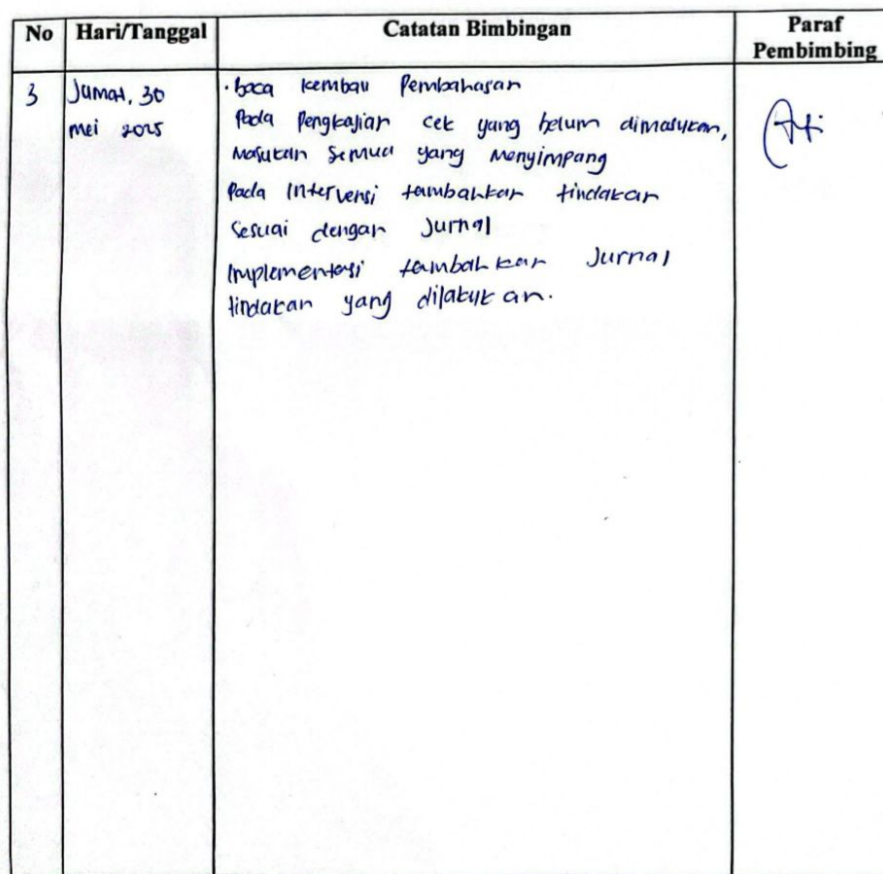 No Hari/Tanggal Catatan Bimbingan Paraf Pembimbing
3 Jumat, 30 mei 2025
· baca kembali Pembahasan
Pada Pengkajian cek yang belum dimasukan,
Masukan Semua yang Menyimpang
Pada Intervensi tambahkan tindakan
Sesuai dengan Jurnal
Implementasi tambahkan Jurnal
tindakan yang dilakukan.